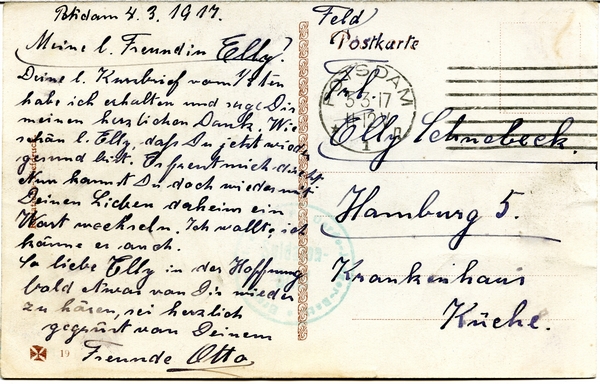 Potsdam 4.3.1917.
Meine l. Freundin Elly!
Deine l. Kusbrief vom 1/3ten
habe ich erhalten und sage Dir
meinen herzlichen Dank. Wie
schön l. Elly, daß Du jetzt wieder
gesund bist. Es freut mich
Nun kannst Du doch wieder mit
Deinen Lieben daheim ein
Wort wechseln. Ich wollte, ich
könnte es auch.
So liebe Elly in der Hoffnung
bald etwas von Dir wieder
zu hören, sei herzlich
gegrüßt von Deinem
Freunde Otto
19
Feld
Postkarte
POTSDAM
5.3.17
Frl.
Elly Schnebeck.
Hamburg 5.
Krankenhaus
Küche.